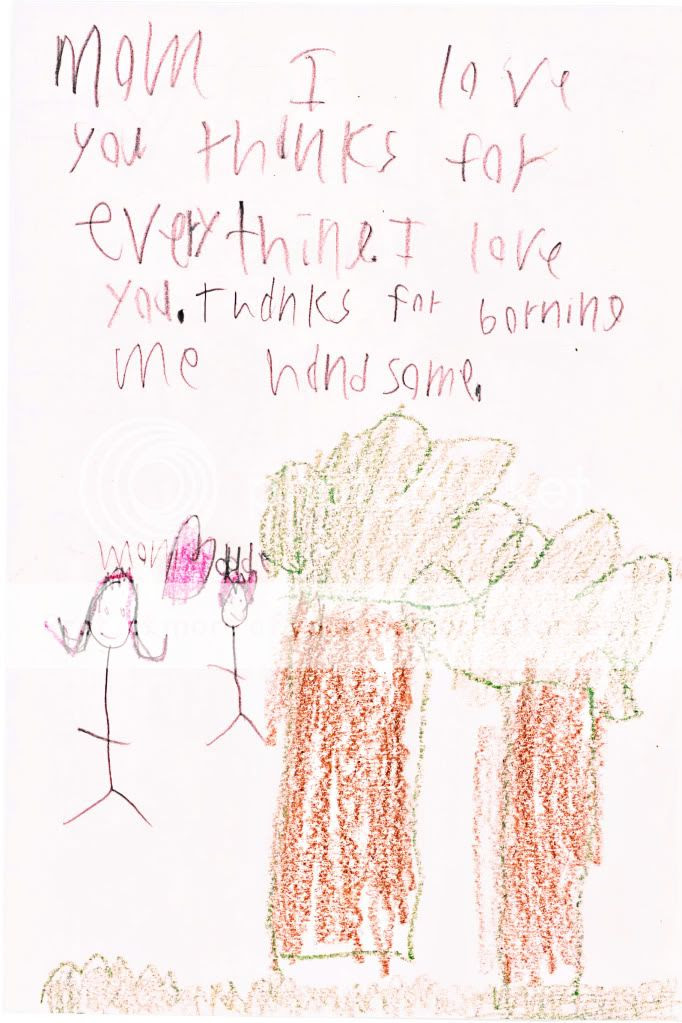 Mom I love
you thinks for
everythine. I love
you. thanks for borning
me handsame.
mom